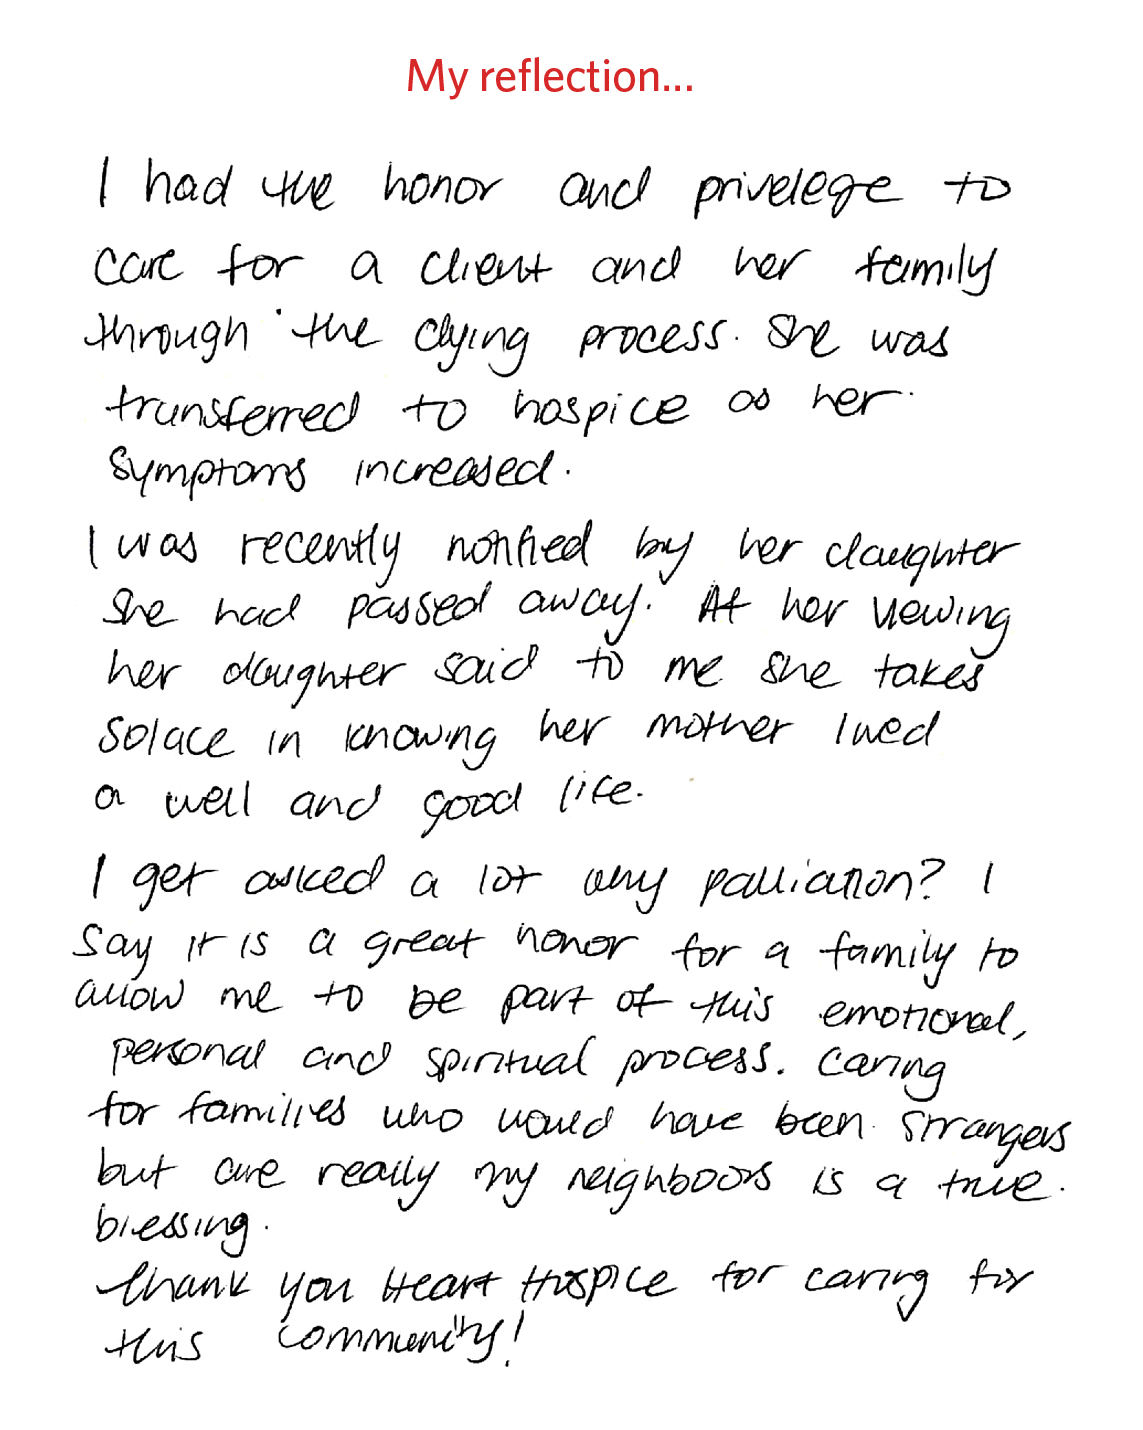 My reflection...
I had the honor and privelege to
care for a client and her family
through the dying process. She was
transferred to hospice as her
symptoms increased.
I was recently notified by her daughter
she had passed away. At her viewing
her daughter said to me she takes
solace in knowing her mother lived
a well and good life.
I get asked a lot why palliation? I
say it is a great honor for a family to
allow me to be part of this emotional,
personal and spiritual process. Caring
for families who would have been strangers
but are really my neighboors is a true
blessing.
Thank you Heart Hospice for caring for
this community!